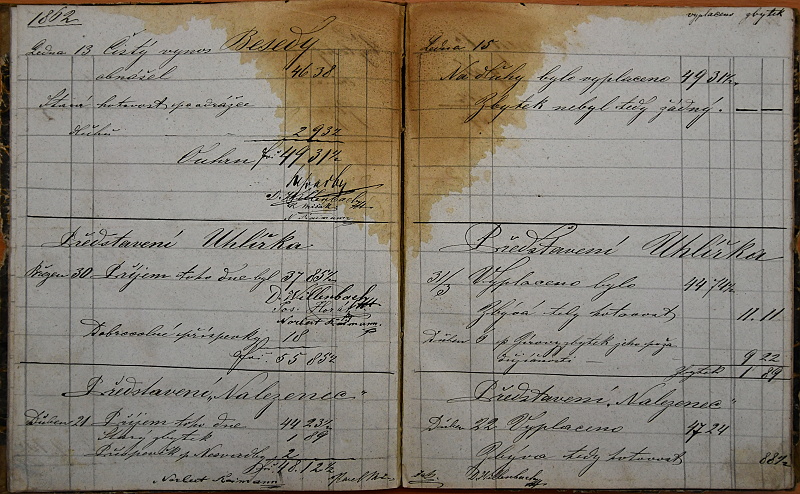 1862
Ledna 13 Čistý výnos Besedy
obnášel 46 38
Stará hotovost
dluhu 2 93½
Ouhrn fr. 49 31½
D. Willenbach
N. Reimann
Představení Uhlířka
Březen 30 Příjem toho dne byl 37 85½
D. Willenbach
Jos.
Norbert Reimann
Dobrovolné příspěvky 18
55 85½
Představení „Nalezenec“
Duben 21 Příjem toho dne 44 23½
Starý zbytek 1 89
Příspěvek p Nesvadby 2
48.12½
Norbert Reimann
vyplaceno zbytek
Ledna 15
Na dluhy bylo vyplaceno 49 31½
Zbytek nebyl tedy žádný. — —
Představení Uhlířka
31/3 Vyplaceno bylo 44 74½
Zbývá tedy hotovost 11.11
Duben 9
9 22
Zbytek 1 89
Představení „Nalezenec“
Duben 22 Vyplaceno 47 24
Zbyva tedy hotovost 88½
D. Willenbach